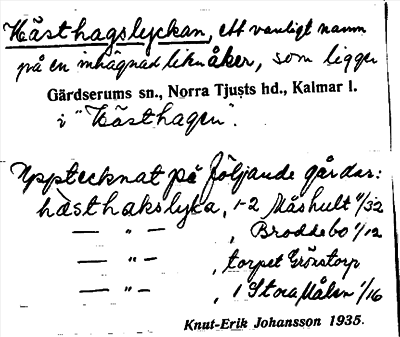 Hästhagslyckan, ett vanligt namn
på en inhägnad liten åker, som ligger
Gärdserums sn., Norra Tjusts hd., Kalmar l.
i "Hästhagen".
Upptecknat på följande gårdar:
hästhakslyka, 1-2 Måshult 11/32
— " — , Broddebo 1/12
— " — , torpet Grönstorp
— " — , 1 Stora Målen 1/16
Knut-Erik Johansson 1935.